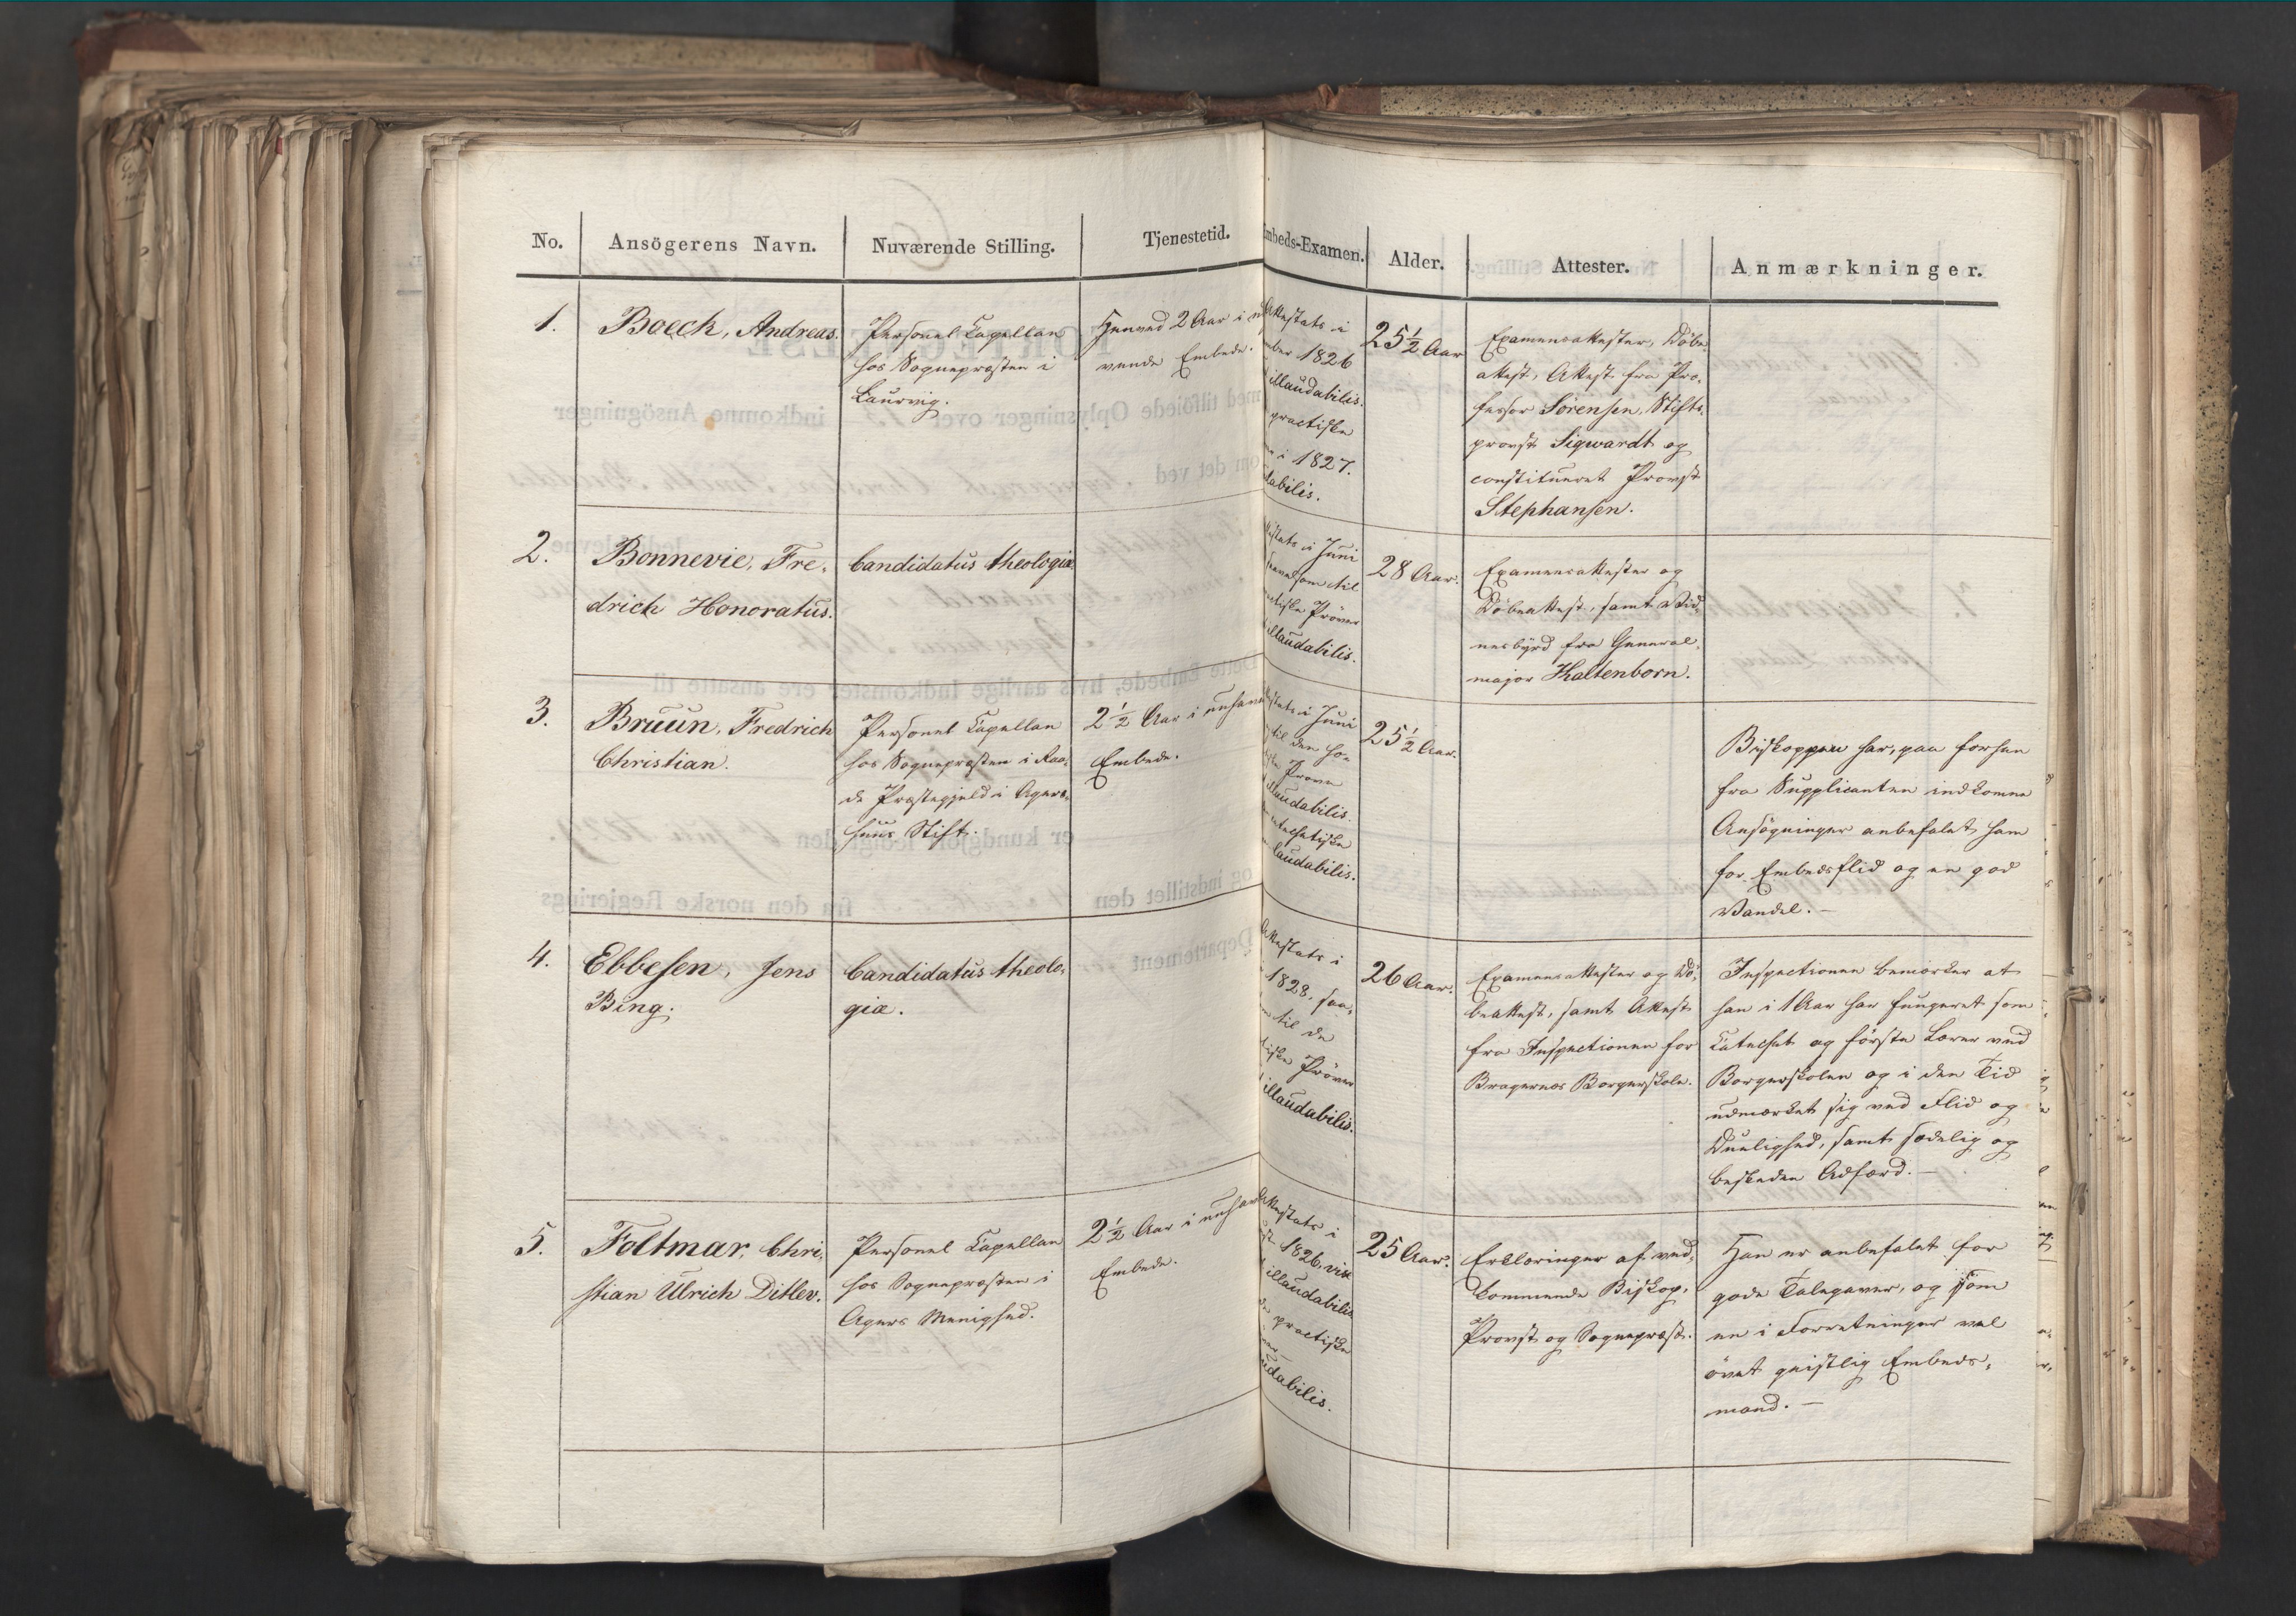 No. Ansögerens Navn. Nuværende Stilling. Tjenestetid. mbeds-Examen. Alder. Attester. Anmærkninger.
1.
Boeck, Andreas.
Personel Capellan
hos Sognepræsten i
Laurvig.
Henved 2 Aar i
vende Embede.
Attestats i
mber 1826
illaudabilis.
practiske
i 1827.
dabilis.
25½ Aar
Examensattester, Döbe-
attest, Attest fra Pro-
fessor Sörensen, Stifts-
provst Sigwardt og
constitueret Provst
Stephansen.
2.
Bonnevie, Fre-
drich Honoratus.
Candidatus theologiæ
Juni
som til
ctiske Pröver
illaudabilis.
28 Aar.
Examensattester og
Döbeattest, samt Vid-
nesbyrd fra General-
major Haltenborn.
3.
Bruun, Fredrich
Christian.
Personel Capellan
hos Sognepræsten i Raa-
de Præstegjeld i Agers-
huus Stift.
2½ Aar i nuhav
Embede.
i Juni
til den ho-
Pröve
laudabilis.
catechetiske
laudabilis.
25½ Aar.
Biskoppen har, paa forhen
fra Supplicanten indkomne
Ansögninger anbefalet ham
for Embedsflid og en god
Vandel. —
4.
Ebbesen, Jens
Bing.
Candidatus theolo-
giæ.
Attestats i
1828, saa-
til de
tiske Pröver
illaudabilis.
26 Aar.
Examensattester og Dö-
beattest, samt Attest
fra Inspectionen for
Bragernes Borgerskole.
Inspectionen bemærker at
han i 1 Aar har fungeret som
Catechet og förste Lærer ved
Borgerskolen og i den Tid
udmærket sig ved Flid og
Duelighed, samt sædelig og
beskeden Adfærd. —
5.
Foltmar, Chri-
stian Ulrich Ditlev.
Personel Capellan
hos Sognepræsten i
Agers Menighed.
2½ Aar i nuhav
Embede.
Attestats i
1826,
illaudabilis
de practiske
udabilis.
25 Aar.
Erklæringer af ved-
kommende Biskop,
Provst og Sognepræst.
Han er anbefalet for
gode Talegaver, og som
en i Forretninger vel
övet geistlig Embeds-
mand. —